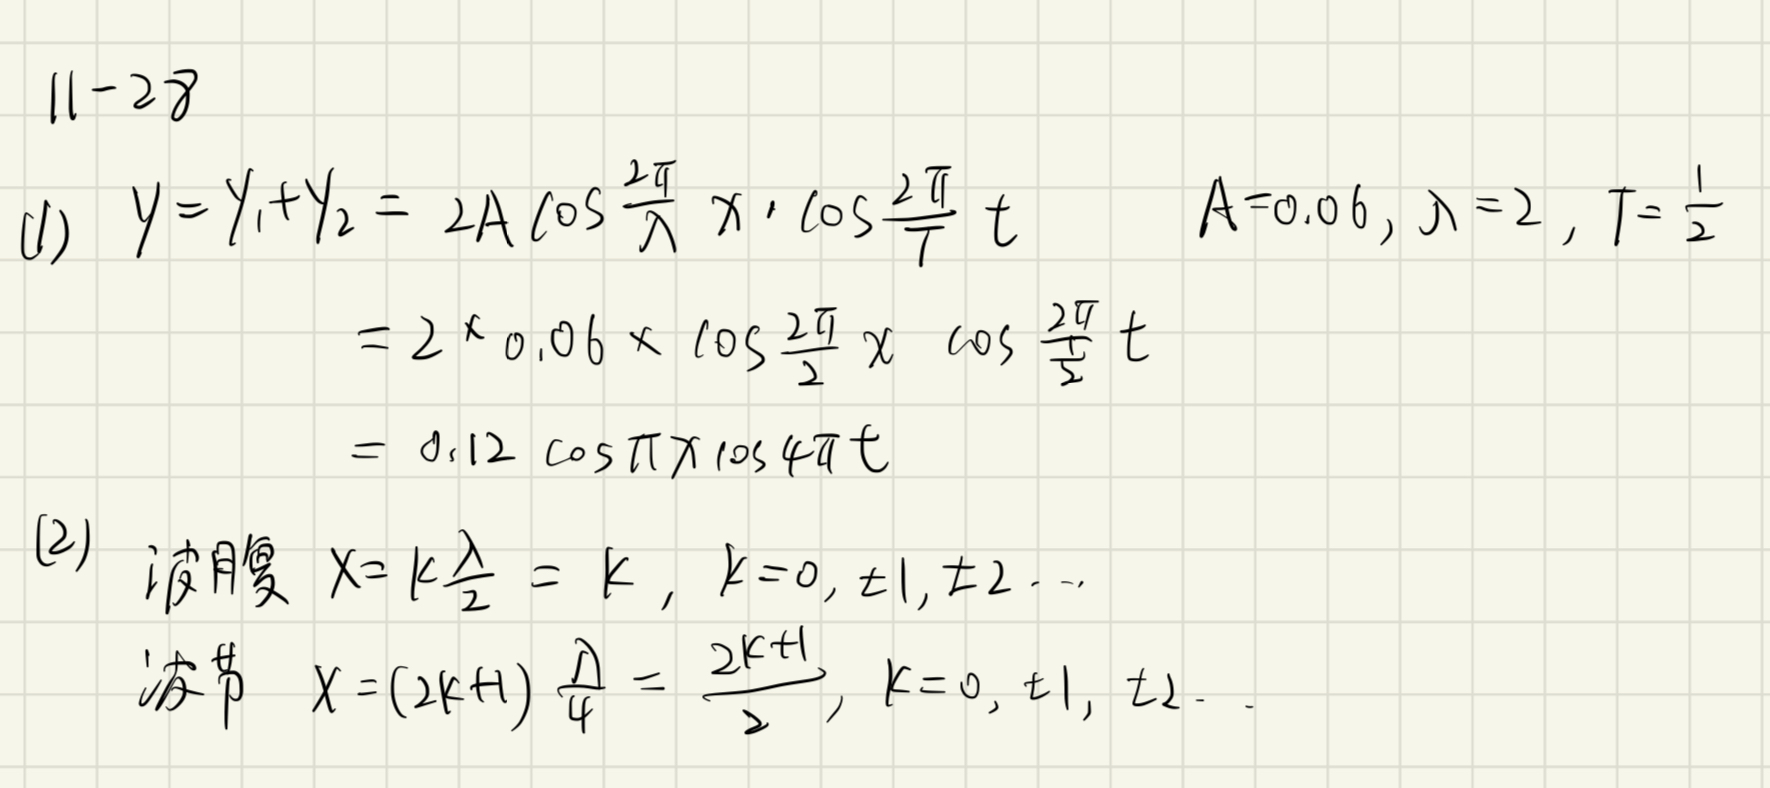 11-28
(1) y=y₁+y₂= 2A cos 2π/λ x · cos 2π/T t A=0.06, λ=2, T= 1/2
= 2 × 0.06 × cos 2π/2 x cos 2π/(1/2) t
= 0.12 cos πx cos 4πt
(2) 波腹 x= k λ/2 = k, k=0, ±1, ±2 ...
波节 x=(2k+1) λ/4 = (2k+1)/2, k=0, ±1, ±2...